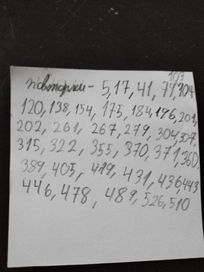 103
повторки - 5, 17, 41, 79, 104
120, 138, 154, 175, 184, 196, 201,
202, 261, 267, 279, 304, 307,
315, 322, 355, 370, 371, 360
389, 405, 419, 431, 436, 443
446, 478, 489, 526, 510